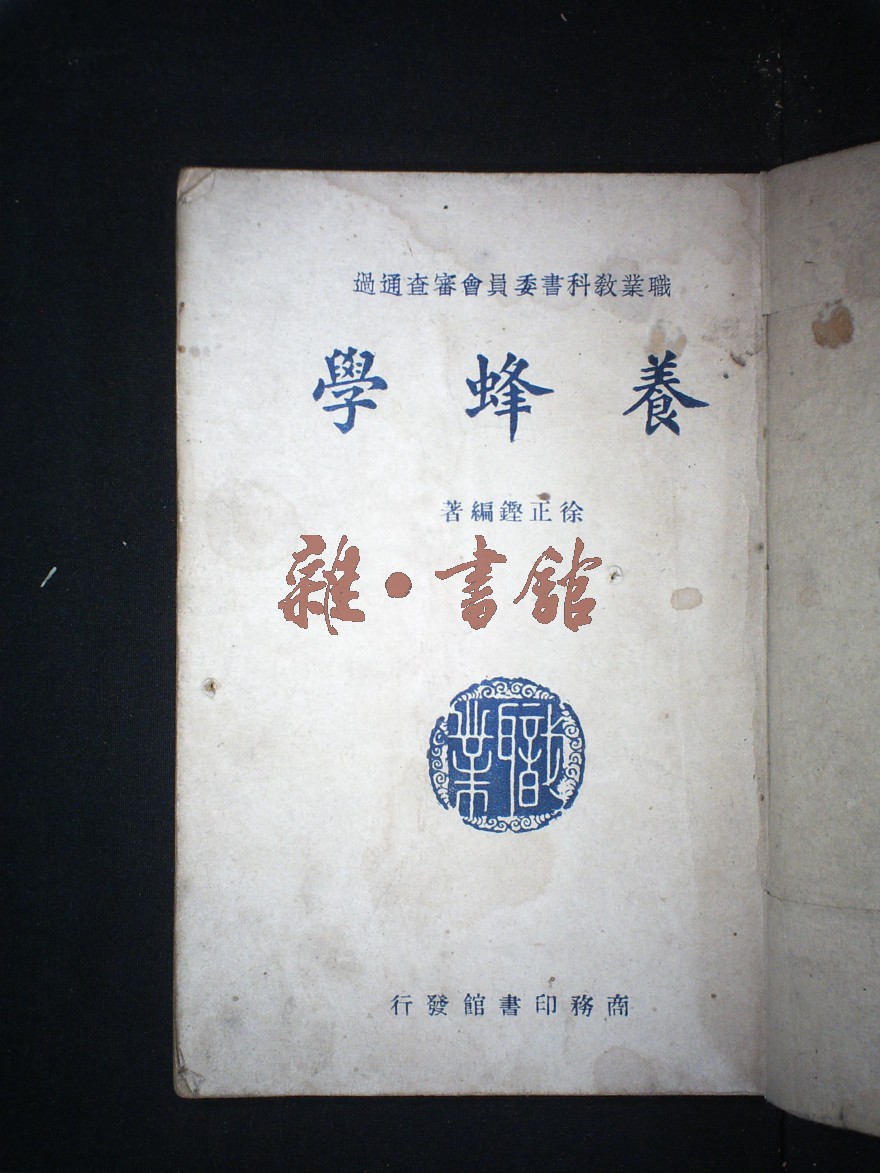 職業教科書委員會審查通過
養蜂學
徐正鏗編著
雜·書館
職業
商務印書館發行